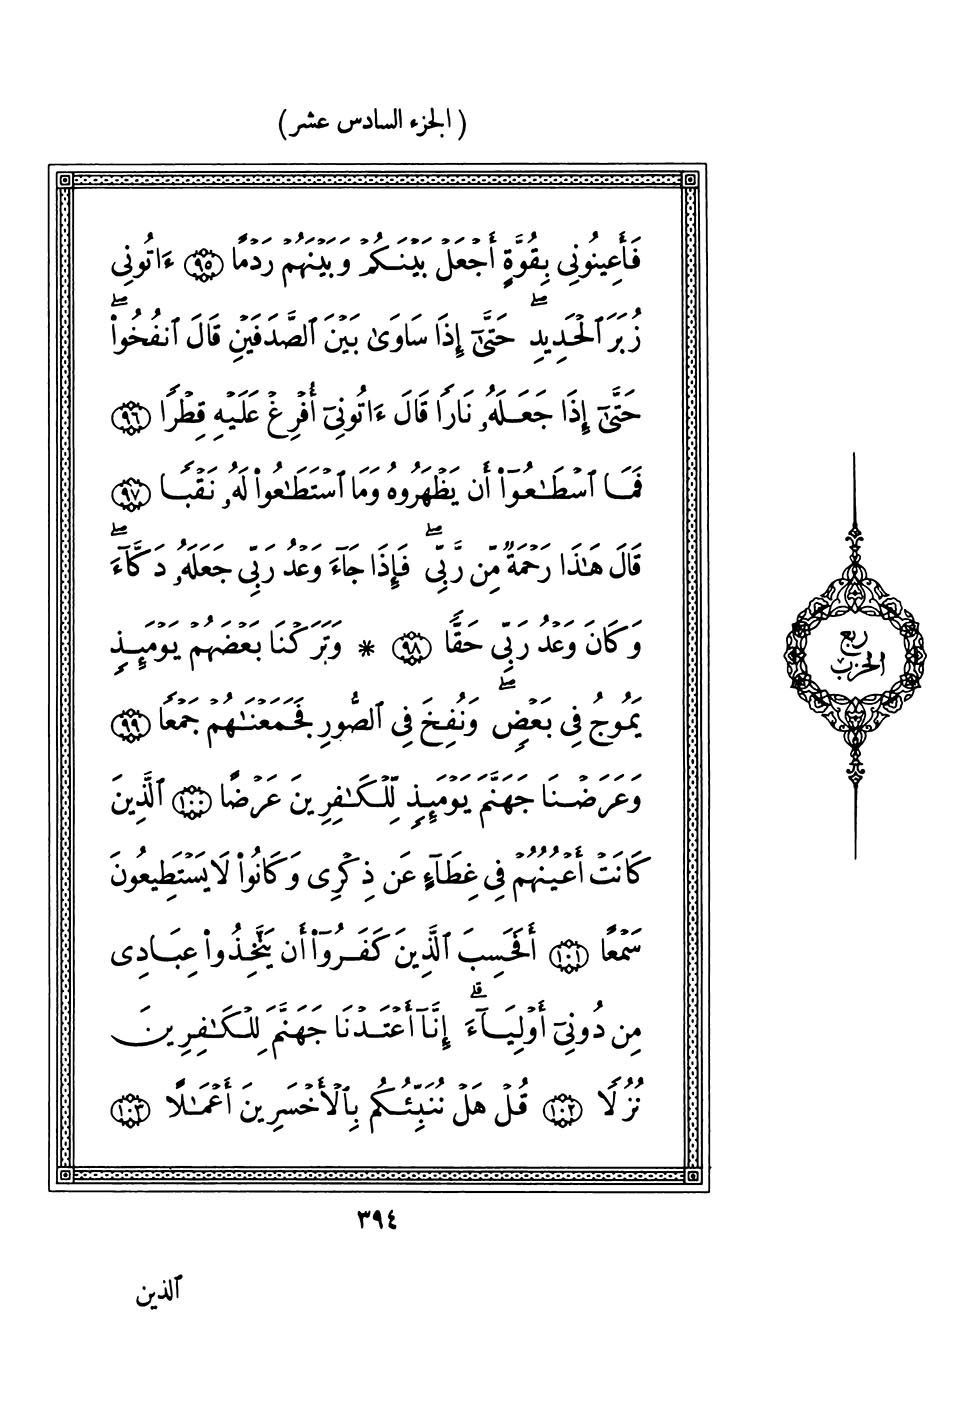 ( الجزء السادس عشر )
فَأَعِينُونِي بِقُوَّةٍ أَجْعَلْ بَيْنَكُمْ وَبَيْنَهُمْ رَدْمًا ٩٥ ءَاتُونِي
زُبَرَ ٱلْحَدِيدِۖ حَتَّىٰٓ إِذَا سَاوَىٰ بَيْنَ ٱلصَّدَفَيْنِ قَالَ ٱنفُخُوا۟ۖ
حَتَّىٰٓ إِذَا جَعَلَهُۥ نَارًا قَالَ ءَاتُونِىٓ أُفْرِغْ عَلَيْهِ قِطْرًا ٩٦
فَمَا ٱسْطَـٰعُوٓا۟ أَن يَظْهَرُوهُ وَمَا ٱسْتَطَـٰعُوا۟ لَهُۥ نَقْبًا ٩٧
قَالَ هَـٰذَا رَحْمَةٌ مِّن رَّبِّىۖ فَإِذَا جَآءَ وَعْدُ رَبِّى جَعَلَهُۥ دَكَّآءَۖ
وَكَانَ وَعْدُ رَبِّى حَقًّا ٩٨ * وَتَرَكْنَا بَعْضَهُمْ يَوْمَئِذٍ
يَمُوجُ فِى بَعْضٍۖ وَنُفِخَ فِى ٱلصُّورِ فَجَمَعْنَـٰهُمْ جَمْعًا ٩٩
وَعَرَضْنَا جَهَنَّمَ يَوْمَئِذٍ لِّلْكَـٰفِرِينَ عَرْضًا ١٠٠ ٱلَّذِينَ
كَانَتْ أَعْيُنُهُمْ فِى غِطَآءٍ عَن ذِكْرِى وَكَانُوا۟ لَا يَسْتَطِيعُونَ
سَمْعًا ١٠١ أَفَحَسِبَ ٱلَّذِينَ كَفَرُوٓا۟ أَن يَتَّخِذُوا۟ عِبَادِى
مِن دُونِىٓ أَوْلِيَآءَۚ إِنَّآ أَعْتَدْنَا جَهَنَّمَ لِلْكَـٰفِرِينَ
نُزُلًا ١٠٢ قُلْ هَلْ نُنَبِّئُكُم بِٱلْأَخْسَرِينَ أَعْمَـٰلًا ١٠٣
ربع
الحزب
٣٩٤
ٱلذين